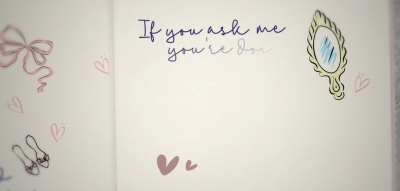 If you ask me
you're